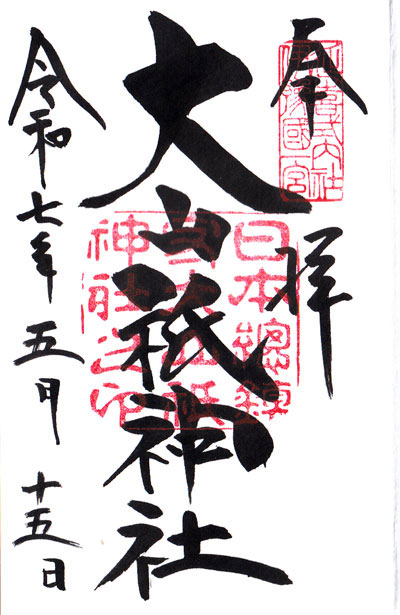 奉拝
大山祇神社
令和七年五月十五日
延喜式内社
伊豫國一宮
日本總鎮
守大山祇
神社之印